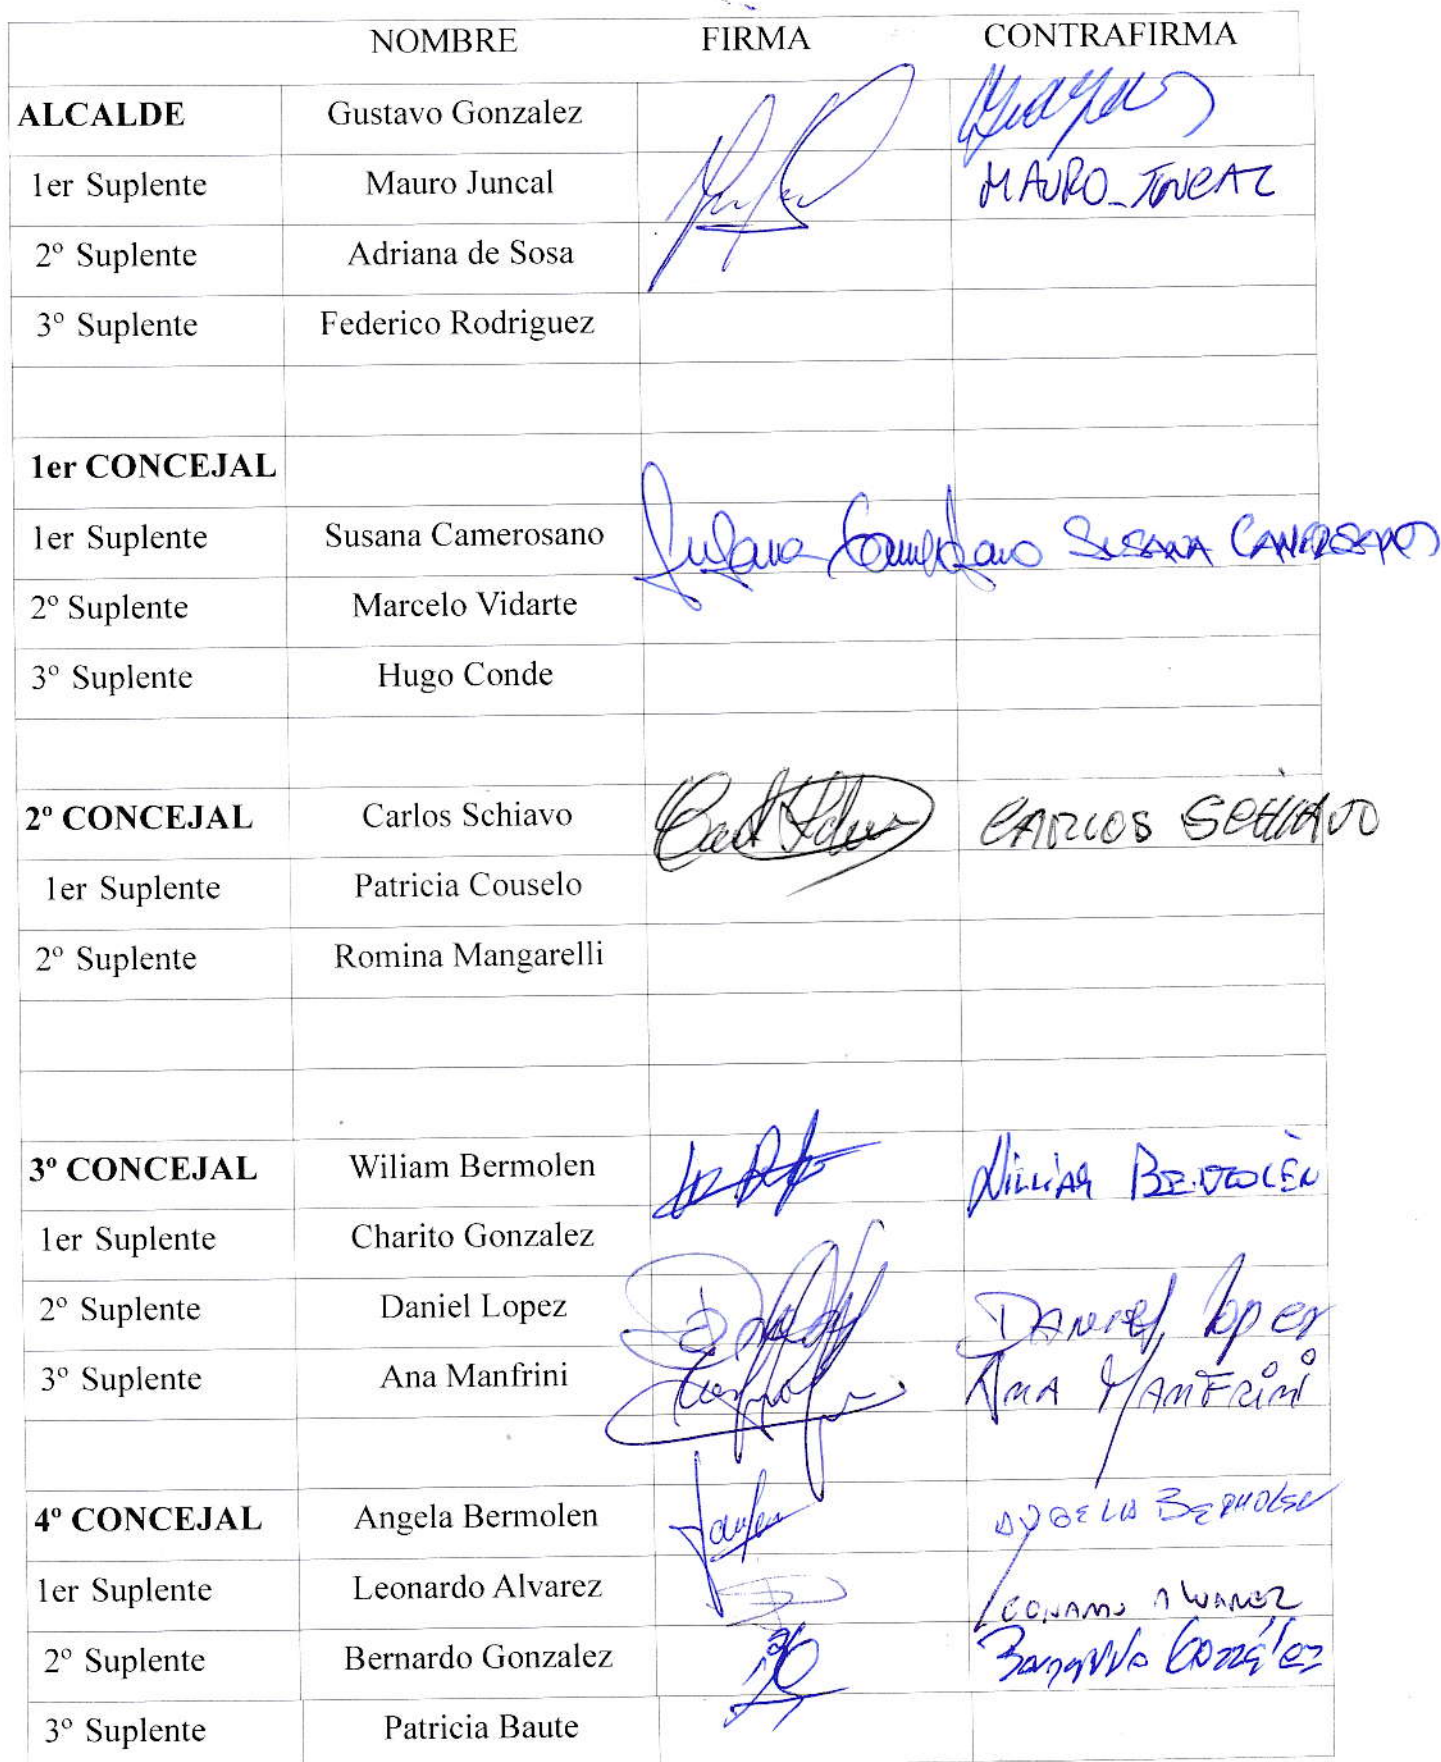 NOMBRE FIRMA CONTRAFIRMA
ALCALDE Gustavo Gonzalez
1er Suplente Mauro Juncal MAURO JUNCAL
2º Suplente Adriana de Sosa
3º Suplente Federico Rodriguez
1er CONCEJAL
1er Suplente Susana Camerosano Susana Camerosano SUSANA CAMEROSANO
2º Suplente Marcelo Vidarte
3º Suplente Hugo Conde
2º CONCEJAL Carlos Schiavo CARLOS SCHIAVO
1er Suplente Patricia Couselo
2º Suplente Romina Mangarelli
3º CONCEJAL Wiliam Bermolen WiLLiAM BERMOLEN
1er Suplente Charito Gonzalez
2º Suplente Daniel Lopez DANIEL lopez
3º Suplente Ana Manfrini ANA MANFRiNi
4º CONCEJAL Angela Bermolen ANGELA BERMOLEN
1er Suplente Leonardo Alvarez LEONARDO ALVAREZ
2º Suplente Bernardo Gonzalez Bernardo González
3º Suplente Patricia Baute